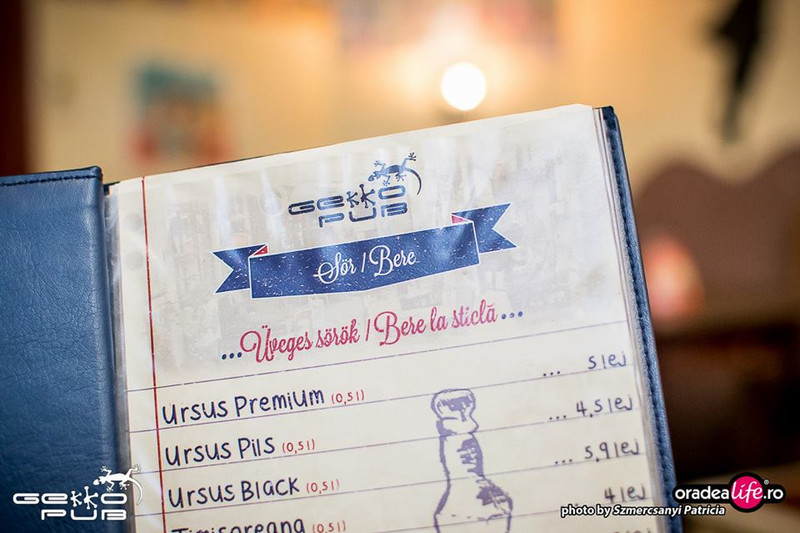 GEKKO
PUB
Sör / Bere
...Üveges sörök / Bere la sticlă...
Ursus Premium (0,5l) ... 5 lej
Ursus Pils (0,5l) ... 4,5 lej
Ursus Black (0,5l) ... 5,9 lej
Timisoreana (0,5l) ... 4 lej
GEKKO
PUB
oradealife.ro
photo by Szmercsanyi Patricia